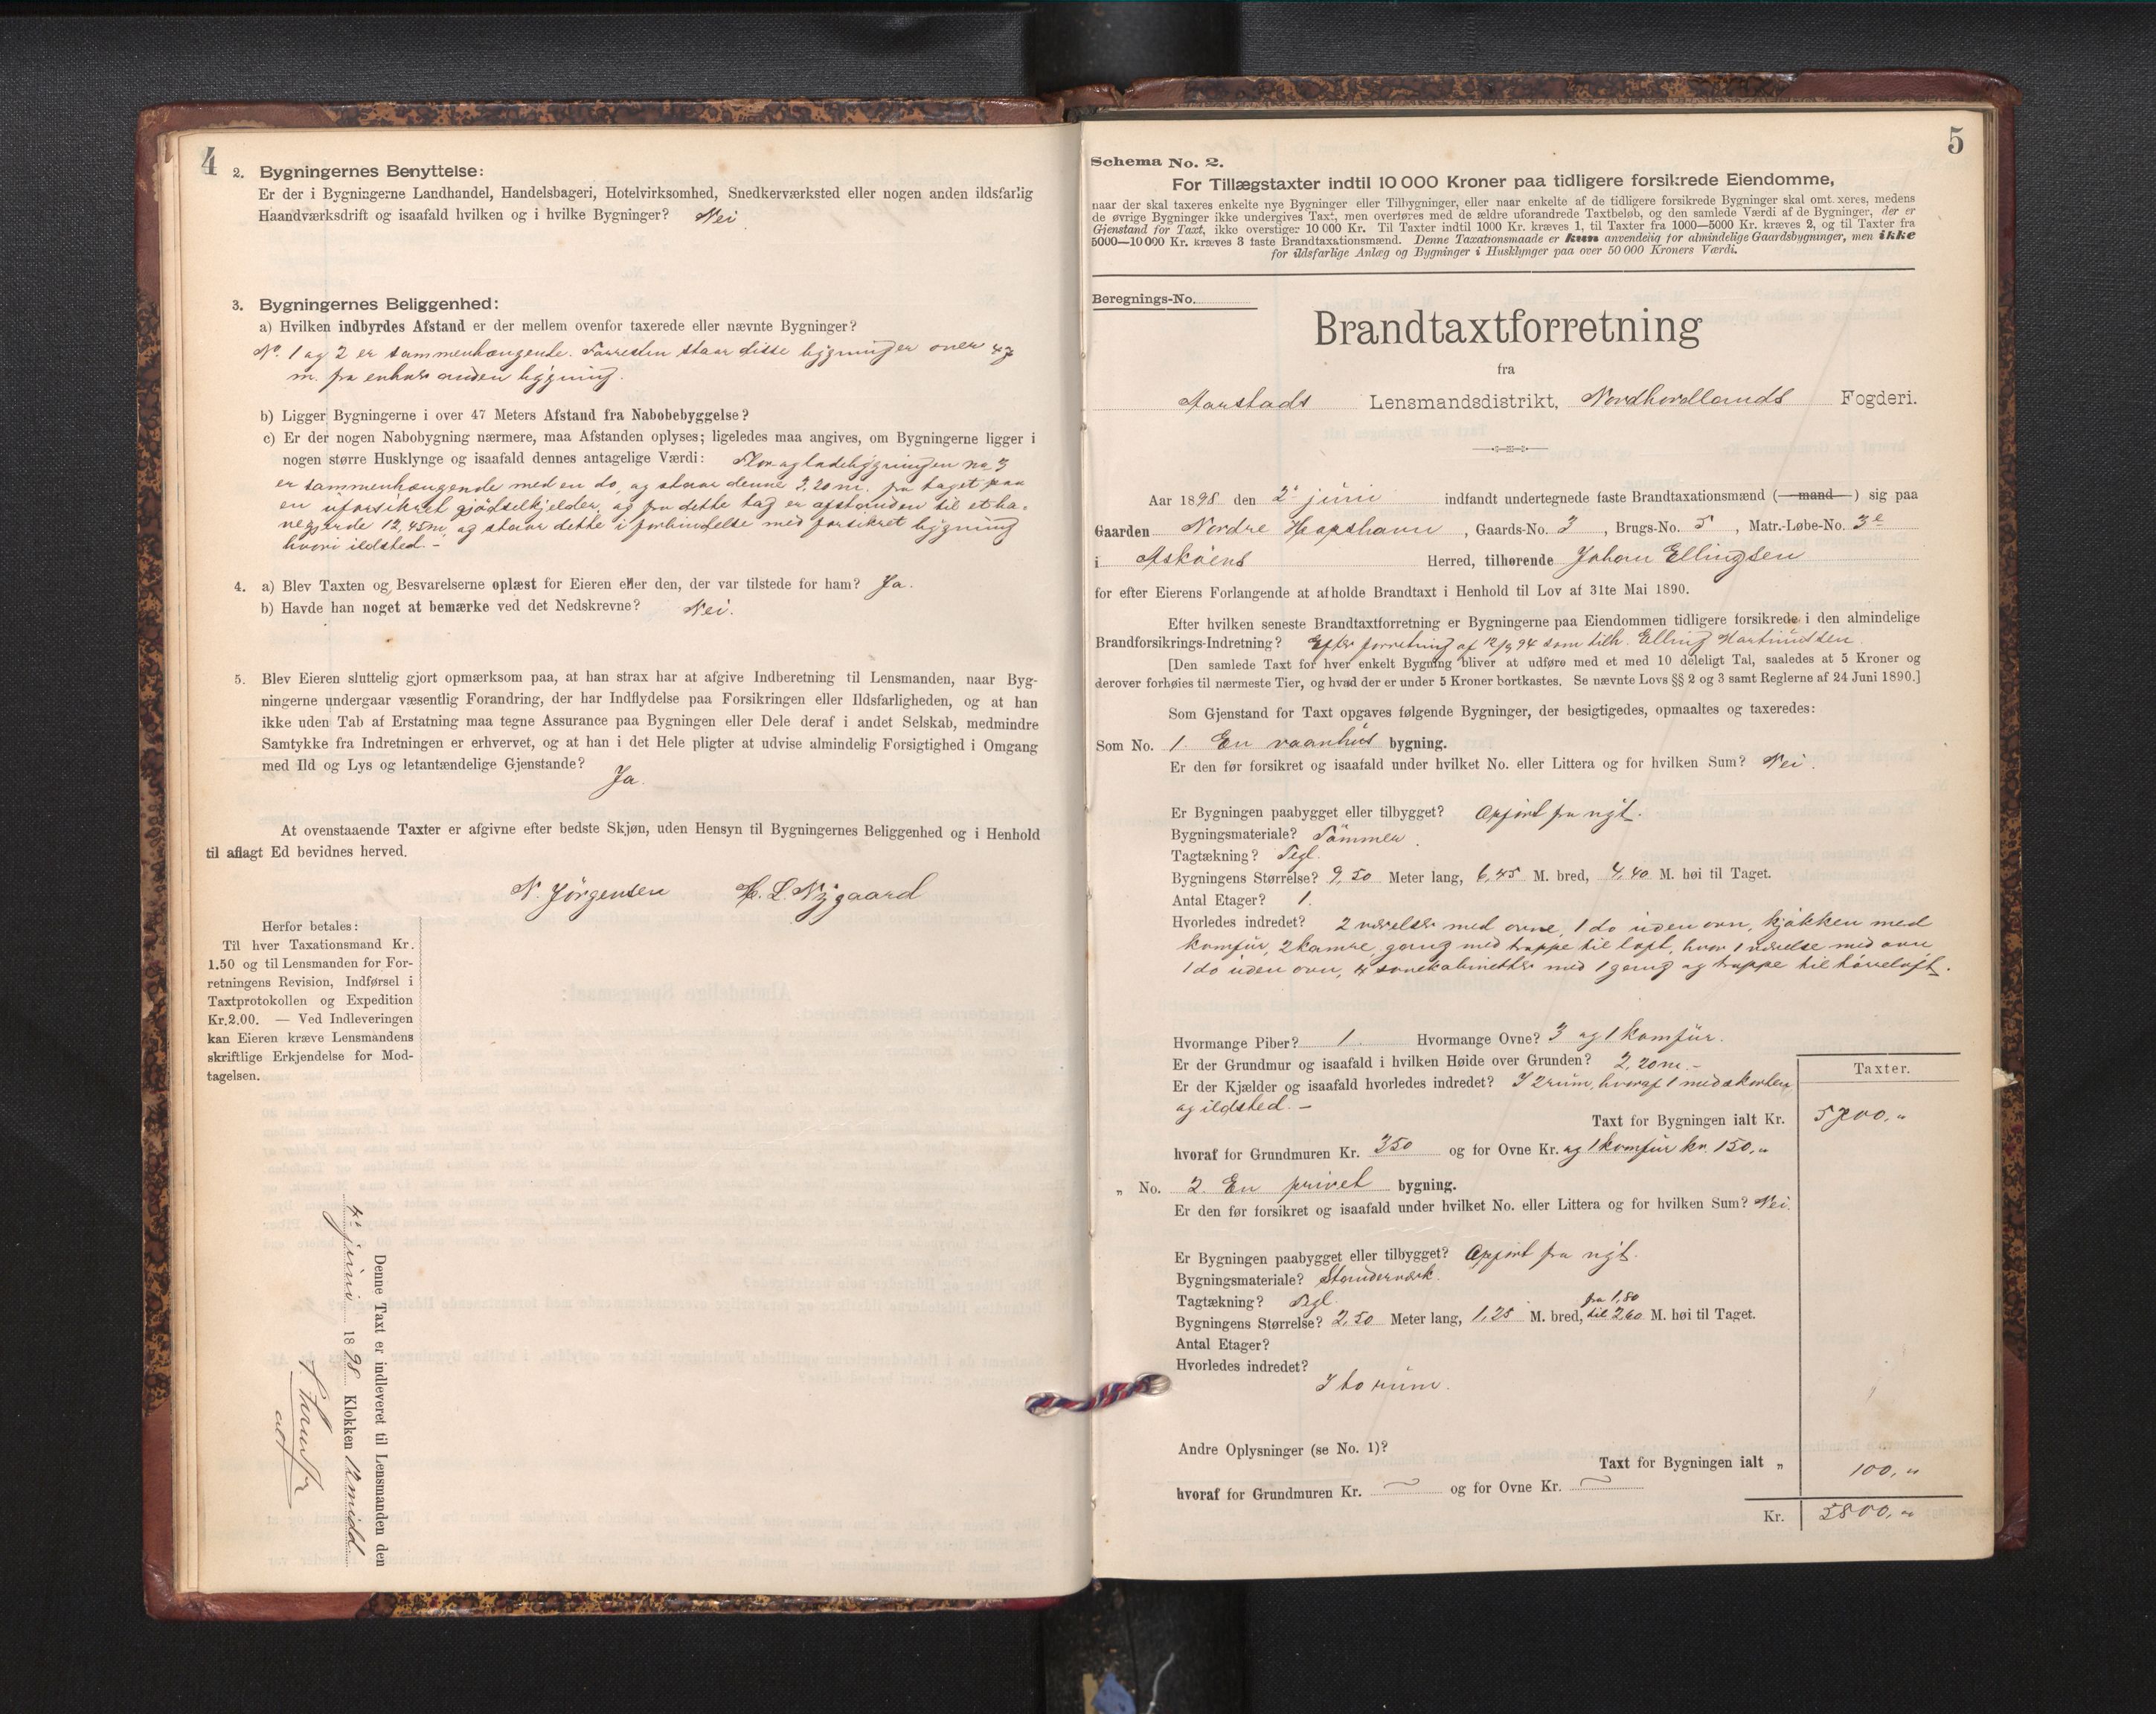 4
2. Bygningernes Benyttelse:
Er der i Bygningerne Landhandel, Handelsbageri, Hotelvirksomhed, Snedkerværksted eller nogen anden ildsfarlig
Haandværksdrift og isaafald hvilken og i hvilke Bygninger? Nei
3. Bygningernes Beliggenhed:
a) Hvilken indbyrdes Afstand er der mellem ovenfor taxerede eller nævnte Bygninger?
No. 1 og 2 er sammenhængende. Forresten staar disse bygninger over 47
m. fra enhver anden bygning.
b) Ligger Bygningerne i over 47 Meters Afstand fra Nabobebyggelse?
c) Er der nogen Nabobygning nærmere, maa Afstanden oplyses; ligeledes maa angives, om Bygningerne ligger i
nogen større Husklynge og isaafald dennes antagelige Værdi: Flor og ladebygningen no 3
er sammenhængende med en do, og staar denne 3,20 m. fra taget paa
en uforsikret gjödselkjelder, og fra dette tag er afstanden til
12,45 m og staar dette i forbindelse med forsikret bygning
hvori ildsted. -
4. a) Blev Taxten og Besvarelserne oplæst for Eieren eller den, der var tilstede for ham? Ja.
b) Havde han noget at bemærke ved det Nedskrevne? Nei.
5. Blev Eieren sluttelig gjort opmærksom paa, at han strax har at afgive Indberetning til Lensmanden, naar Byg-
ningerne undergaar væsentlig Forandring, der har Indflydelse paa Forsikringen eller Ildsfarligheden, og at han
ikke uden Tab af Erstatning maa tegne Assurance paa Bygningen eller Dele deraf i andet Selskab, medmindre
Samtykke fra Indretningen er erhvervet, og at han i det Hele pligter at udvise almindelig Forsigtighed i Omgang
med Ild og Lys og letantændelige Gjenstande?
Ja.
At ovenstaaende Taxter er afgivne efter bedste Skjøn, uden Hensyn til Bygningernes Beliggenhed og i Henhold
til aflagt Ed bevidnes herved.
N. Jörgensen H. L. Nygaard
Herfor betales:
Til hver Taxationsmand Kr.
1.50 og til Lensmanden for For-
retningens Revision, Indførsel i
Taxtprotokollen og Expedition
Kr. 2.00. — Ved Indleveringen
kan Eieren kræve Lensmandens
skriftlige Erkjendelse for Mod-
tagelsen.
Denne Taxt er indleveret til Lensmanden den
4 juni 1898 Klokken 12 midd
5
Schema No. 2.
For Tillægstaxter indtil 10 000 Kroner paa tidligere forsikrede Eiendomme,
naar der skal taxeres enkelte nye Bygninger eller Tilbygninger, eller naar enkelte af de tidligere forsikrede Bygninger skal omt xeres, medens
de øvrige Bygninger ikke undergives Taxt, men overføres med de ældre uforandrede Taxtbeløb, og den samlede Værdi af de Bygninger, der er
Gjenstand for Taxt, ikke overstiger 10 000 Kr. Til Taxter indtil 1000 Kr. kræves 1, til Taxter fra 1000—5000 Kr. kræves 2, og til Taxter fra
5000—10 000 Kr. kræves 3 faste Brandtaxationsmænd. Denne Taxationsmaade er kun anvendelig for almindelige Gaardsbygninger, men ikke
for ildsfarlige Anlæg og Bygninger i Husklynger paa over 50 000 Kroners Værdi.
Beregnings-No.
Brandtaxtforretning
fra
Aarstads Lensmandsdistrikt, Nordhordlands Fogderi.
Aar 1898 den 2 juni indfandt undertegnede faste Brandtaxationsmænd (—mand—) sig paa
Gaarden Nordre Hopshavn, Gaards-No. 3, Brugs-No. 5, Matr.-Løbe-No. 3e
i Asköens Herred, tilhørende Johan Ellingsen
for efter Eierens Forlangende at afholde Brandtaxt i Henhold til Lov af 31te Mai 1890.
Efter hvilken seneste Brandtaxtforretning er Bygningerne paa Eiendommen tidligere forsikrede i den almindelige
Brandforsikrings-Indretning? Efter forretning af 12/9 94 som tilh. Elling
[Den samlede Taxt for hver enkelt Bygning bliver at udføre med et med 10 deleligt Tal, saaledes at 5 Kroner og
derover forhøies til nærmeste Tier, og hvad der er under 5 Kroner bortkastes. Se nævnte Lovs §§ 2 og 3 samt Reglerne af 24 Juni 1890.]
Som Gjenstand for Taxt opgaves følgende Bygninger, der besigtigedes, opmaaltes og taxeredes:
Som No. 1. En vaanhus bygning.
Er den før forsikret og isaafald under hvilket No. eller Littera og for hvilken Sum? Nei.
Er Bygningen paabygget eller tilbygget? Opført fra nyt.
Bygningsmateriale? Tömmer.
Tagtækning? Tegl.
Bygningens Størrelse? 9,50 Meter lang, 6,45 M. bred, 4,40 M. høi til Taget.
Antal Etager? 1.
Hvorledes indredet? 2 værelser med ovne, 1 do uden ovn, kjökken med
komfür, 2 kamre, gang med trappe til loft, hvor 1 værelse med ovn
1 do uden ovn, 4 sovekabinetter med 1 gang og trappe til höieloft.
Hvormange Piber? 1. Hvormange Ovne? 3 og 1 komfür.
Er der Grundmur og isaafald i hvilken Høide over Grunden? 2,20 m. -
Er der Kjælder og isaafald hvorledes indredet? I 2 rum, hvoraf 1 med skorsten
og ildsted. -
Taxter.
Taxt for Bygningen ialt Kr. 5700,"
hvoraf for Grundmuren Kr. 350 og for Ovne Kr. og 1 komfür kr. 150,"
" No. 2. En privet bygning.
Er den før forsikret og isaafald under hvilket No. eller Littera og for hvilken Sum? Nei.
Er Bygningen paabygget eller tilbygget? Opført fra nyt.
Bygningsmateriale? Standerværk.
Tagtækning? Tegl.
Bygningens Størrelse? 2,50 Meter lang, 1,25 M. bred, fra 1,80 til 2,60 M. høi til Taget.
Antal Etager?
Hvorledes indredet?
I to rum.
Andre Oplysninger (se No. 1)?
Taxt for Bygningen ialt " 100,"
hvoraf for Grundmuren Kr. og for Ovne Kr.
Kr. 5800,"